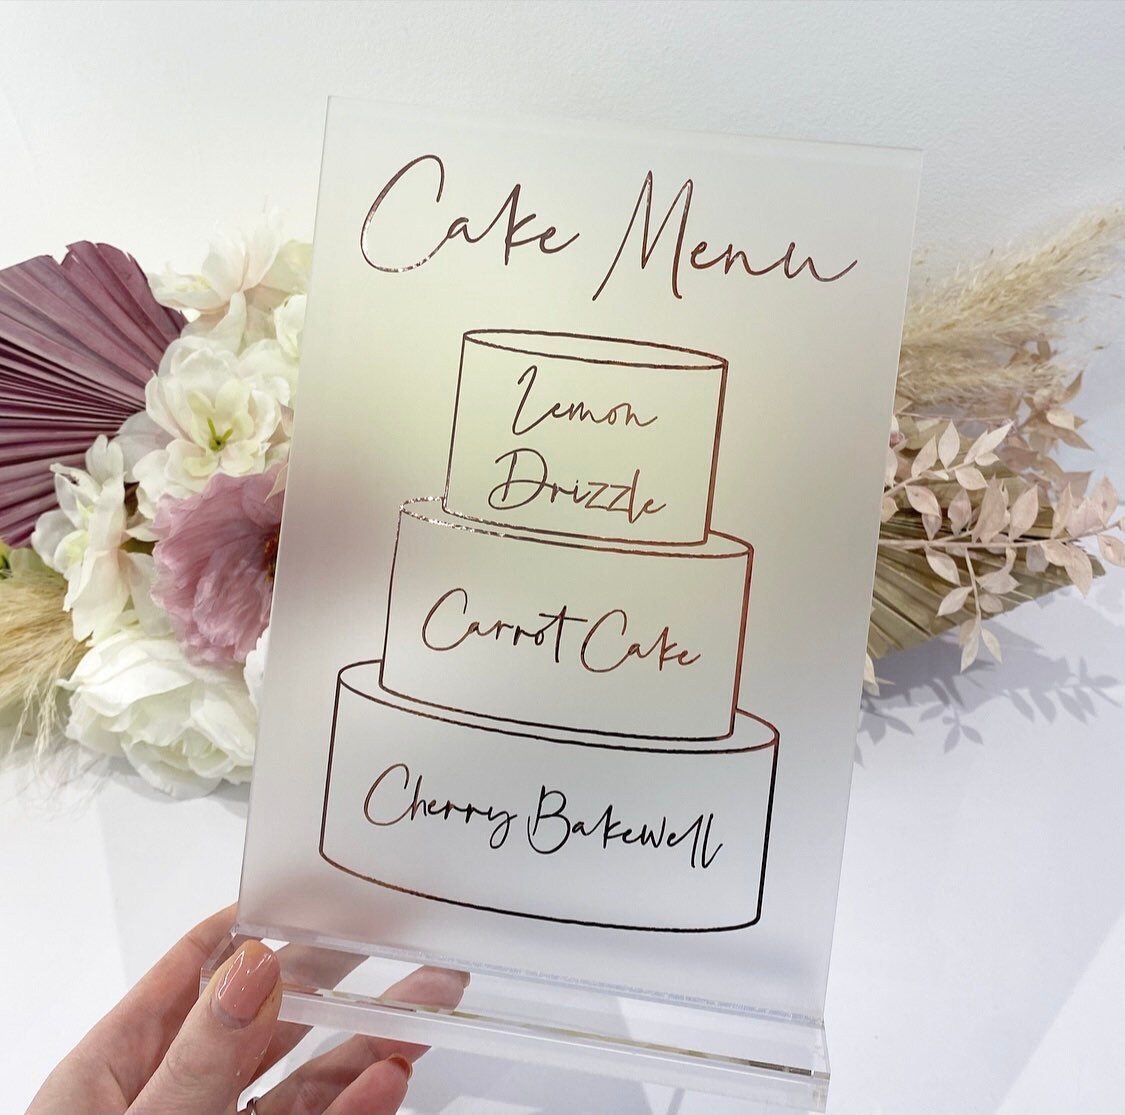 Cake Menu
Lemon
Drizzle
Carrot Cake
Cherry Bakewell